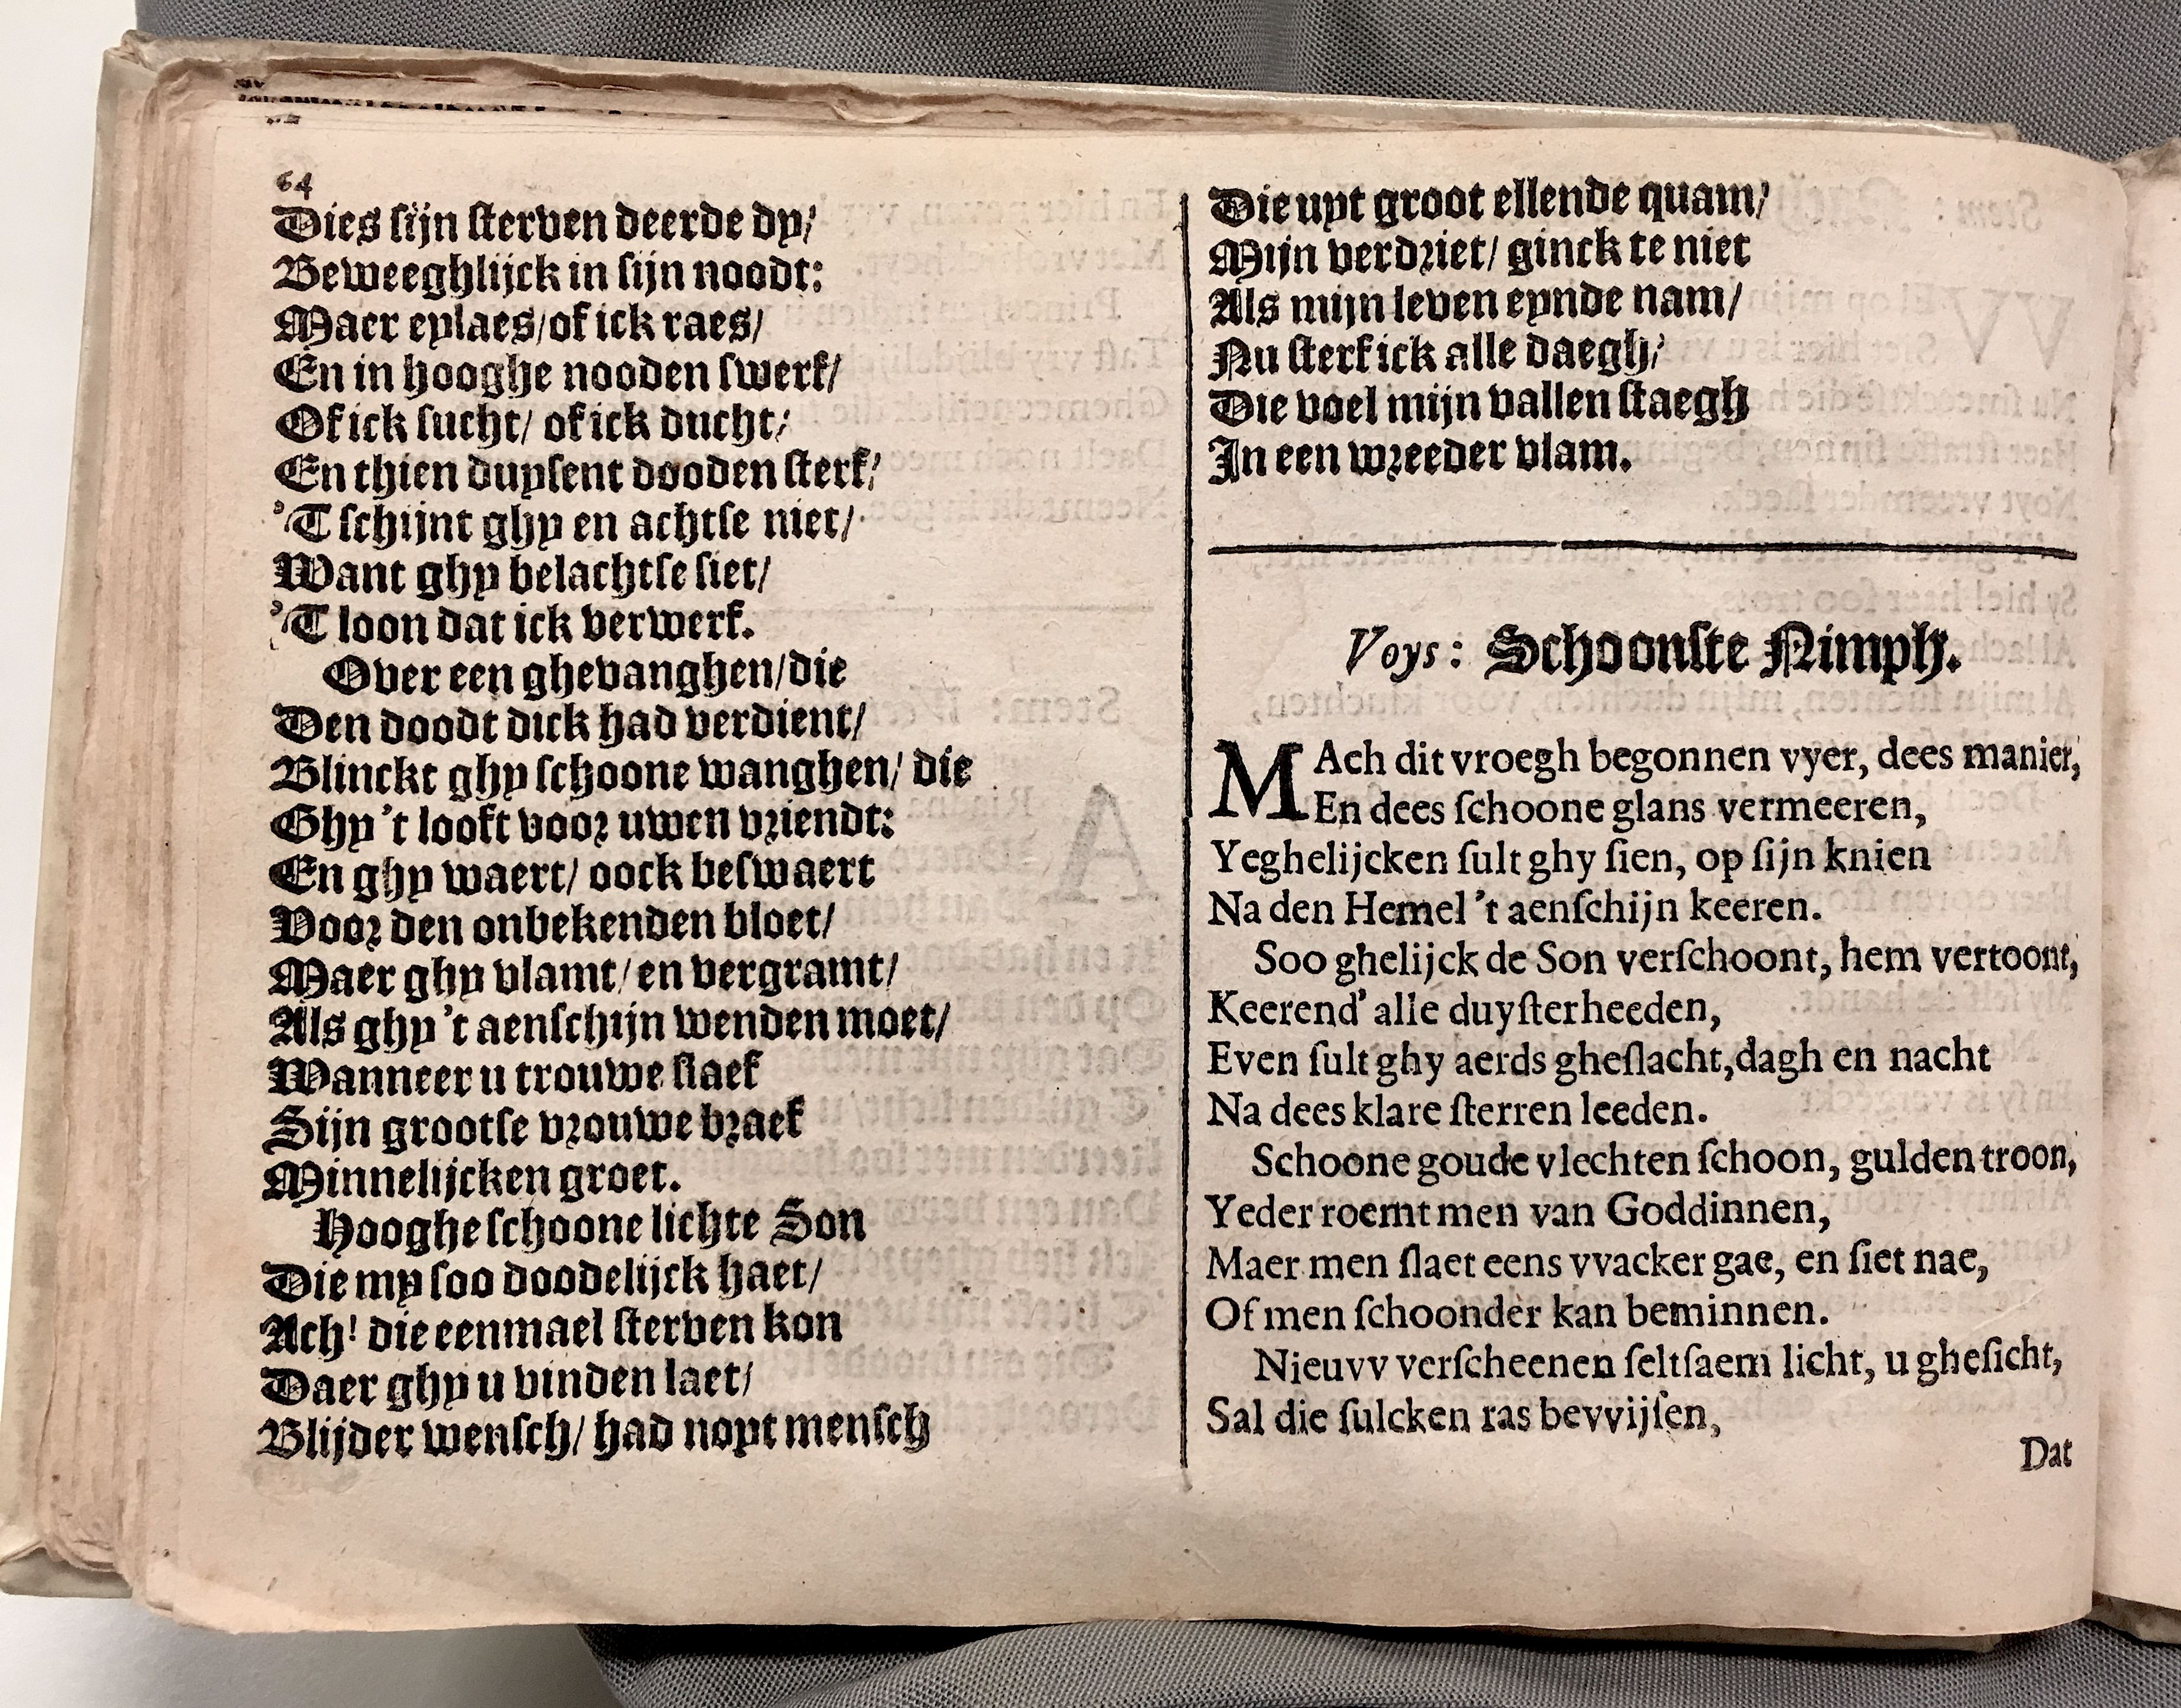 64
Dies ſijn ſterven deerde dy/
Beweeghlijck in ſijn noodt:
Maer eylaes/of ick raes/
En in hooghe nooden ſwerf/
Of ick ſucht/ of ick ducht/
En thien duyſent dooden ſterf/
'T ſchijnt ghy en achtſe niet/
Want ghy belachtſe ſiet/
'T loon dat ick verwerf.
Over een ghevanghen/die
Den doodt dick had verdient/
Blinckt ghy ſchoone wanghen/ die
Ghy 't looft voor uwen vriendt:
En ghy waert/ oock beſwaert
Voor den onbekenden bloet/
Maer ghy vlamt/en vergramt/
Als ghy 't aenſchijn wenden moet/
Wanneer u trouwe ſlaef
Sijn grootſe vrouwe braef
Minnelijcken groet.
Hooghe ſchoone lichte Son
Die my ſoo doodelijck haet/
Ach! die eenmael ſterven kon
Daer ghy u vinden laet/
Blijder wenſch/ had noyt menſch
Die uyt groot ellende quam/
Mijn verdriet/ ginck te niet
Als mijn leven eynde nam/
Nu ſterf ick alle daegh/
Die voel mijn vallen ſtaegh
In een wreeder vlam.
Voys: Schoonſte Nimph.
MAch dit vroegh begonnen vyer, dees manier,
En dees ſchoone glans vermeeren,
Yeghelijcken ſult ghy ſien, op ſijn knien
Na den Hemel 't aenſchijn keeren.
Soo ghelijck de Son verſchoont, hem vertoont,
Keerend' alle duyſterheeden,
Even ſult ghy aerds gheſlacht,dagh en nacht
Na dees klare ſterren leeden.
Schoone goude vlechten ſchoon, gulden troon,
Yeder roemt men van Goddinnen,
Maer men ſlaet eens vvacker gae, en ſiet nae,
Of men ſchoonder kan beminnen.
Nieuvv verſcheenen ſeltſaem licht, u gheſicht,
Sal die ſulcken ras bevvijſen,
Dat